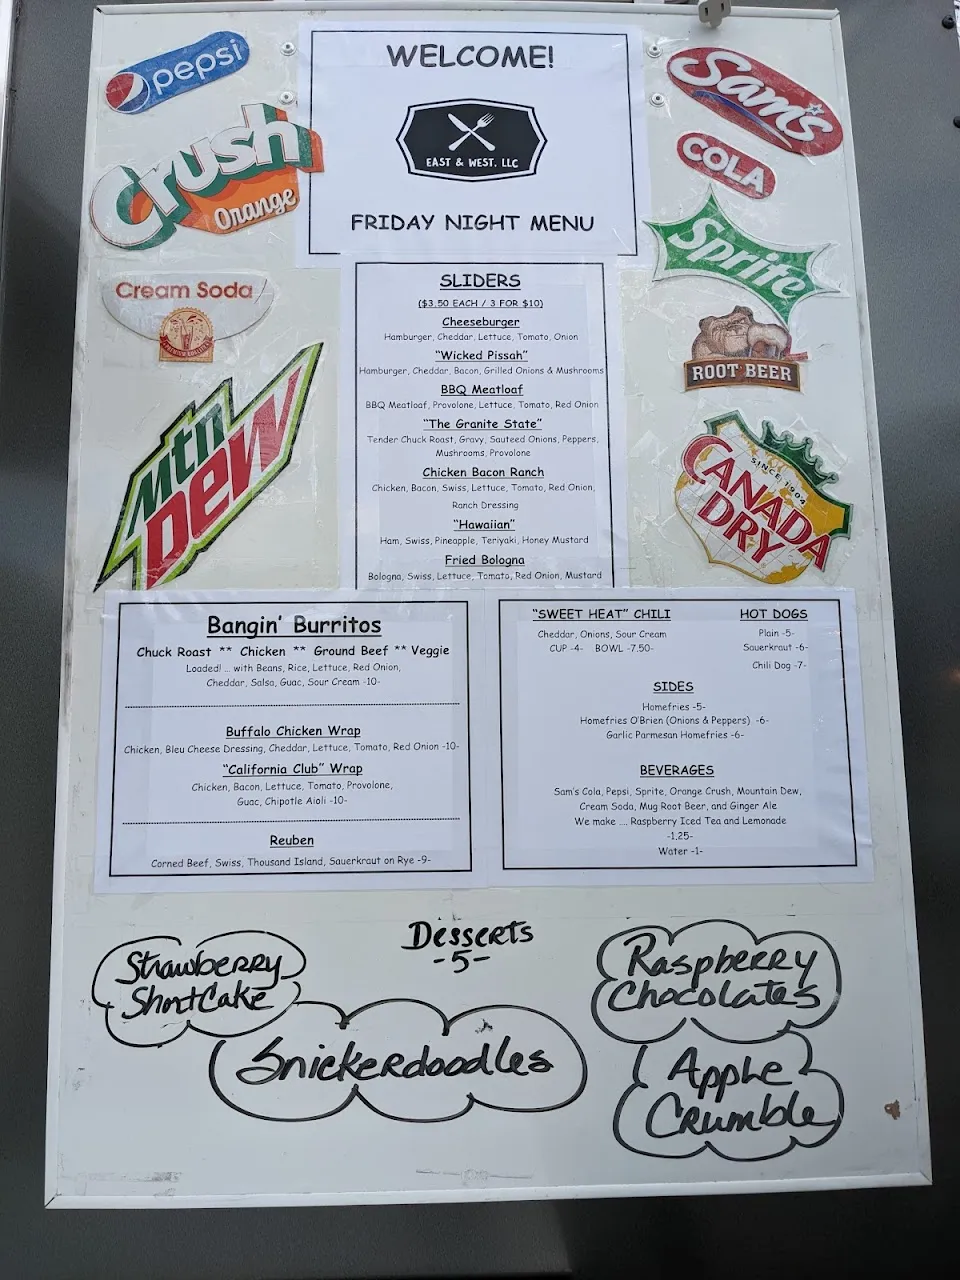 WELCOME!
EAST & WEST, LLC
FRIDAY NIGHT MENU
pepsi
Crush
Orange
Cream Soda
Mtn
Dew
Sam's
COLA
Sprite
ROOT BEER
SINCE 1904
CANADA
DRY
SLIDERS
($3.50 EACH / 3 FOR $10)
Cheeseburger
Hamburger, Cheddar, Lettuce, Tomato, Onion
"Wicked Pissah"
Hamburger, Cheddar, Bacon, Grilled Onions & Mushrooms
BBQ Meatloaf
BBQ Meatloaf, Provolone, Lettuce, Tomato, Red Onion
"The Granite State"
Tender Chuck Roast, Gravy, Sauteed Onions, Peppers,
Mushrooms, Provolone
Chicken Bacon Ranch
Chicken, Bacon, Swiss, Lettuce, Tomato, Red Onion,
Ranch Dressing
"Hawaiian"
Ham, Swiss, Pineapple, Teriyaki, Honey Mustard
Fried Bologna
Bologna, Swiss, Lettuce, Tomato, Red Onion, Mustard
Bangin' Burritos
Chuck Roast ** Chicken ** Ground Beef ** Veggie
Loaded! ... with Beans, Rice, Lettuce, Red Onion,
Cheddar, Salsa, Guac, Sour Cream -10-
Buffalo Chicken Wrap
Chicken, Bleu Cheese Dressing, Cheddar, Lettuce, Tomato, Red Onion -10-
"California Club" Wrap
Chicken, Bacon, Lettuce, Tomato, Provolone,
Guac, Chipotle Aioli -10-
Reuben
Corned Beef, Swiss, Thousand Island, Sauerkraut on Rye -9-
"SWEET HEAT" CHILI
Cheddar, Onions, Sour Cream
CUP -4- BOWL -7.50-
HOT DOGS
Plain -5-
Sauerkraut -6-
Chili Dog -7-
SIDES
Homefries -5-
Homefries O'Brien (Onions & Peppers) -6-
Garlic Parmesan Homefries -6-
BEVERAGES
Sam's Cola, Pepsi, Sprite, Orange Crush, Mountain Dew,
Cream Soda, Mug Root Beer, and Ginger Ale
We make .... Raspberry Iced Tea and Lemonade
-1.25-
Water -1-
Desserts
-5-
Strawberry
ShortCake
Snickerdoodles
Raspberry
Chocolates
Apple
Crumble